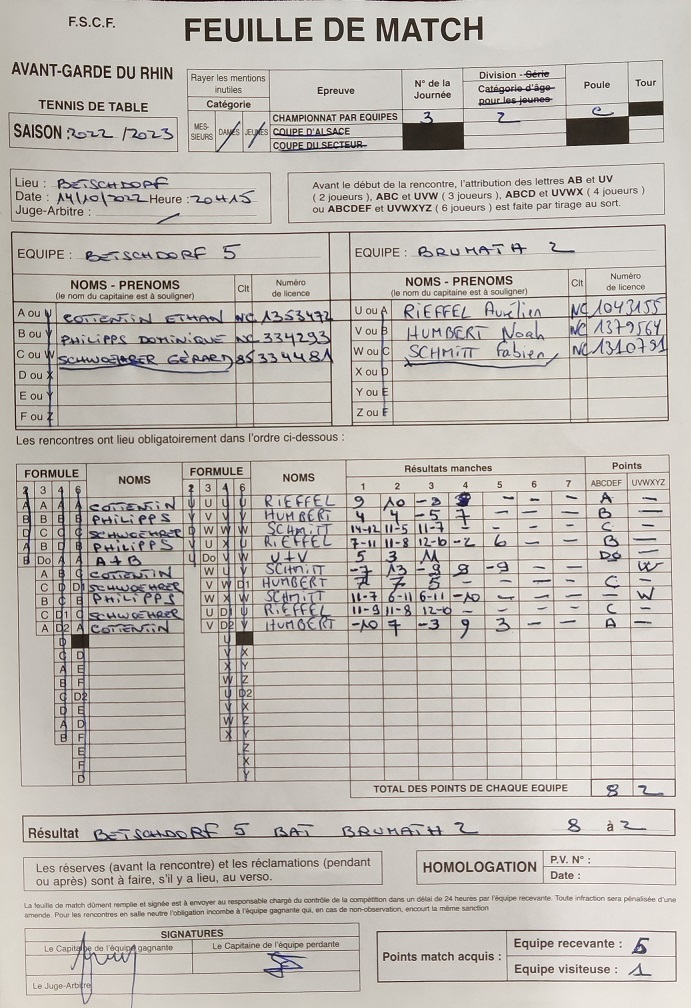 F.S.C.F.
FEUILLE DE MATCH
AVANT-GARDE DU RHIN
TENNIS DE TABLE
SAISON: 2022 / 2023
Rayer les mentions inutiles
Catégorie
MES-SIEURS DAMES JEUNES
Epreuve
CHAMPIONNAT PAR EQUIPES
COUPE D'ALSACE
COUPE DU SECTEUR
N° de la Journée
3
Division - Série
Catégorie d'âge pour les jeunes
2
Poule
C
Tour
Lieu : BETSCHDORF
Date : 14/10/2022 Heure : 20H15
Juge-Arbitre :
Avant le début de la rencontre, l'attribution des lettres AB et UV
( 2 joueurs ), ABC et UVW ( 3 joueurs ), ABCD et UVWX ( 4 joueurs )
ou ABCDEF et UVWXYZ ( 6 joueurs ) est faite par tirage au sort.
EQUIPE : BETSCHDORF 5
EQUIPE : BRUMATH 2
NOMS - PRENOMS Clt Numéro de licence
(le nom du capitaine est à souligner)
NOMS - PRENOMS Clt Numéro de licence
(le nom du capitaine est à souligner)
A ou U COTTENTIN ETHAN NC 1353472
U ou A RIEFFEL Aurélien NC 1043155
B ou V PHILIPPS DOMINIQUE NC 334293
V ou B HUMBERT Noah NC 1379564
C ou W SCHWOEHRER GÉRARD 85 334481
W ou C SCHMITT Fabien NC 1310791
D ou X
X ou D
E ou Y
Y ou E
F ou Z
Z ou F
Les rencontres ont lieu obligatoirement dans l'ordre ci-dessous :
FORMULE NOMS FORMULE NOMS Résultats manches Points
2 3 4 6 2 3 4 6 1 2 3 4 5 6 7 ABCDEF UVWXYZ
A A A A COTTENTIN U U U U RIEFFEL 9 10 -8 - - - A -
B B B B PHILIPPS V V V V HUMBERT 4 4 -5 7 - - - B -
C C C SCHWOEHRER W W W SCHMITT 14-12 11-5 11-7 - - - - C -
A B D B PHILIPPS V U X U RIEFFEL 7-11 11-8 12-10 -2 6 - - B -
B Do A A+B U Do V U+V 5 3 11 - - - Do -
A B C COTTENTIN W U SCHMITT -7 13 -9 8 -9 - - W
C D D1 SCHWOEHRER V W D1 HUMBERT 7 7 5 - - - - C -
B C B PHILIPPS W X W SCHMITT 11-7 6-11 6-11 -10 - - - - W
C D1 C SCHWOEHRER U D1 U RIEFFEL 11-9 11-8 12-10 - - - - C -
A D2 A COTTENTIN V D2 V HUMBERT -10 7 -3 9 3 - - A -
TOTAL DES POINTS DE CHAQUE EQUIPE 8 2
Résultat BETSCHDORF 5 BAT BRUMATH 2 8 à 2
Les réserves (avant la rencontre) et les réclamations (pendant
ou après) sont à faire, s'il y a lieu, au verso.
HOMOLOGATION
P.V. N° :
Date :
La feuille de match dûment remplie et signée est à envoyer au responsable chargé du contrôle de la compétition dans un délai de 24 heures par l'équipe recevante. Toute infraction sera pénalisée d'une
amende. Pour les rencontres en salle neutre l'obligation incombe à l'équipe gagnante qui, en cas de non-observation, encourt la même sanction
SIGNATURES
Le Capitaine de l'équipe gagnante
Le Capitaine de l'équipe perdante
Le Juge-Arbitre
Points match acquis :
Equipe recevante : 5
Equipe visiteuse : 1